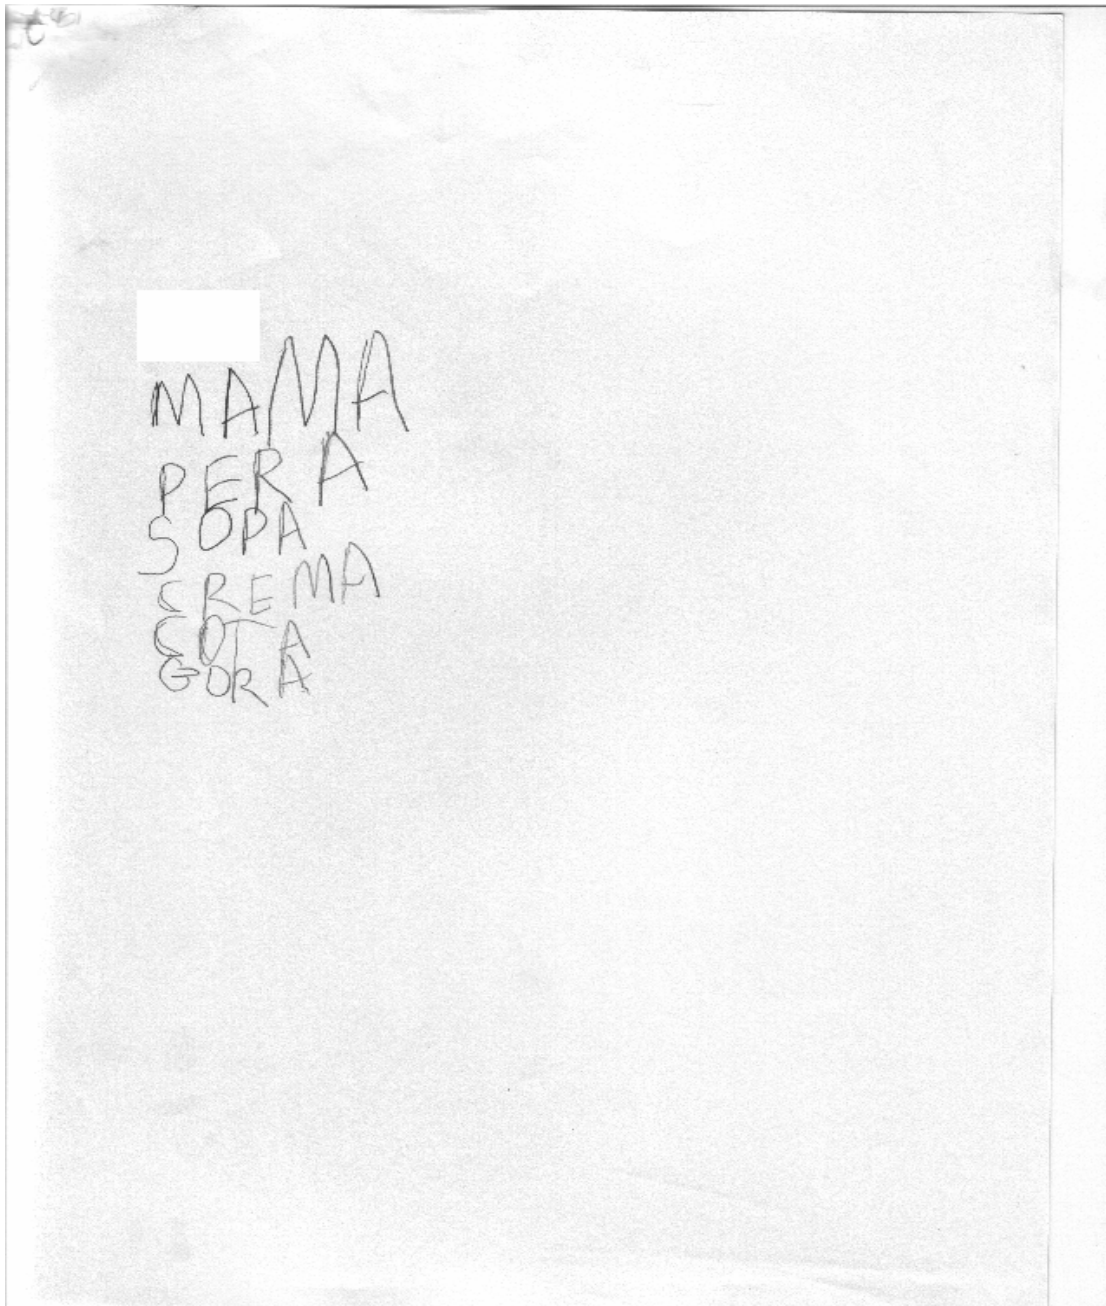 MAMA
PERA
SOPA
CREMA
COTA
GORA